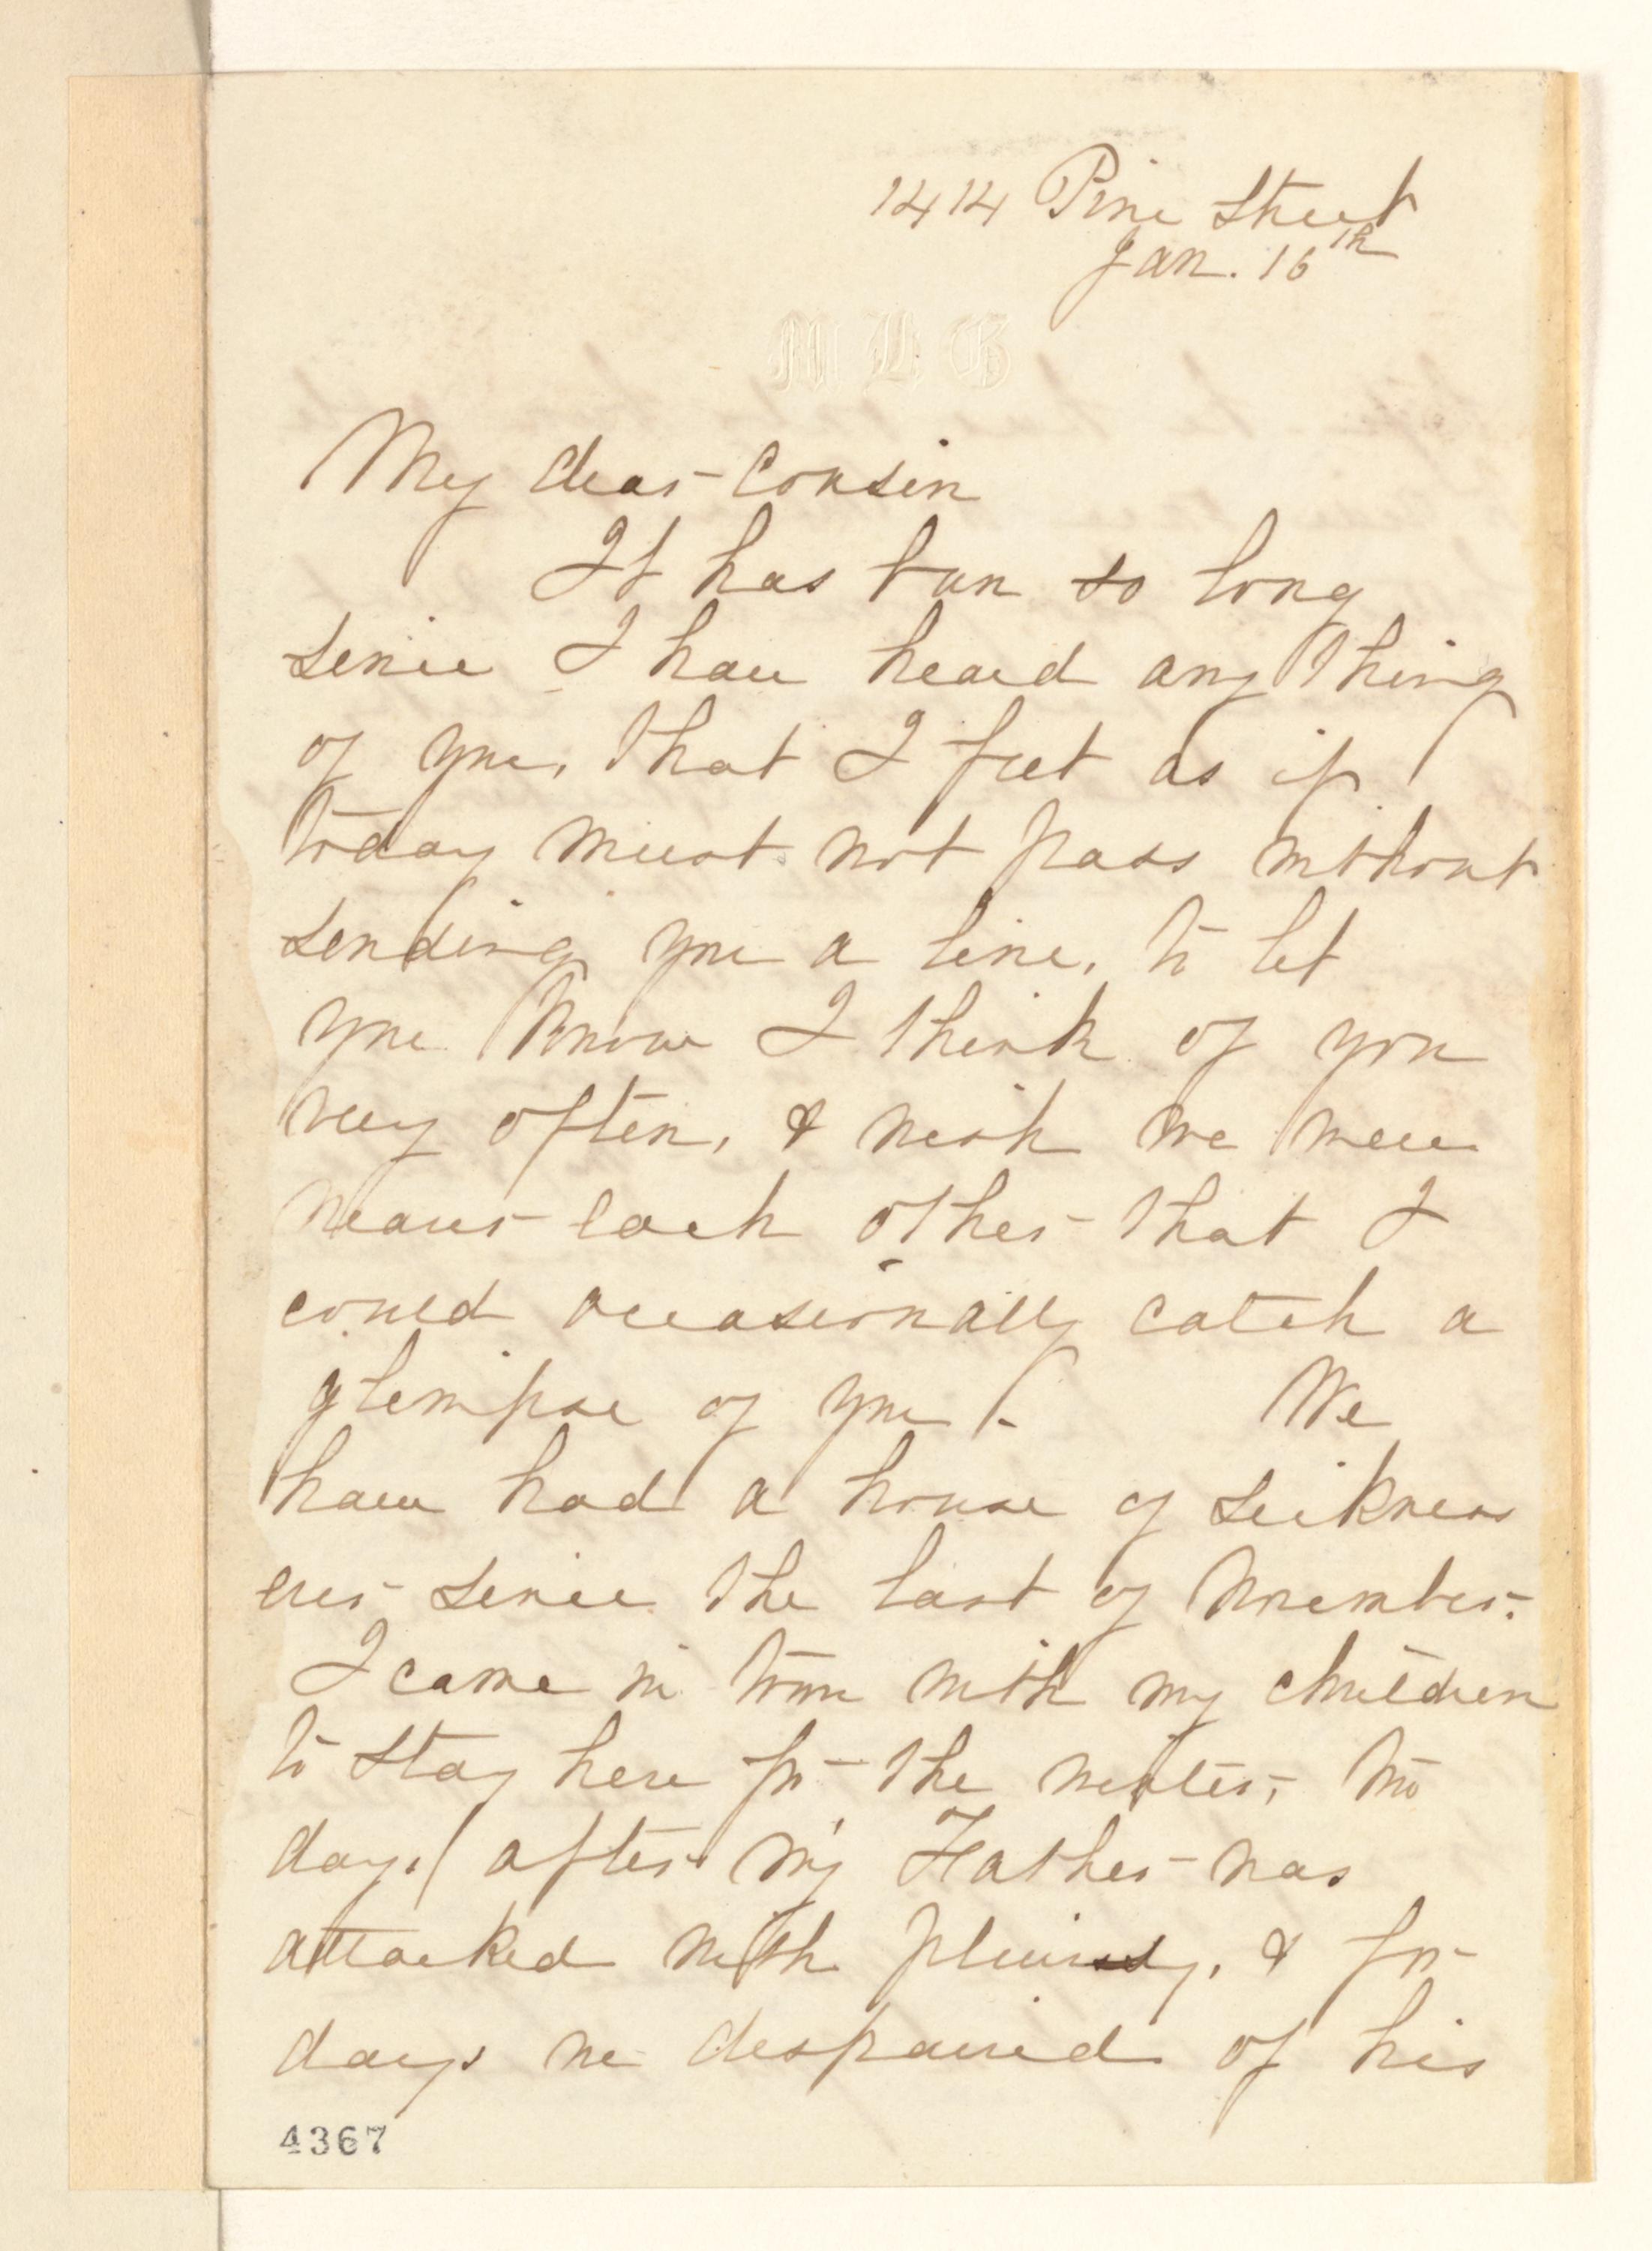 1414 Pine Street
Jan. 16th
M L G
My dear Cousin
It has been so long
since I have heard any thing
of you, that I feel as if
today must not pass without
sending you a line, to let
you know I think of you
very often, & wish we were
nearer each other that I
could occasionally catch a
glimpse of you!. We
have had a house of sickness
ever since the last of November.
I came in town with my children
to stay here for the winter, two
days after my Father was
attacked with pleurisy, & for
days we despaired of his
4367